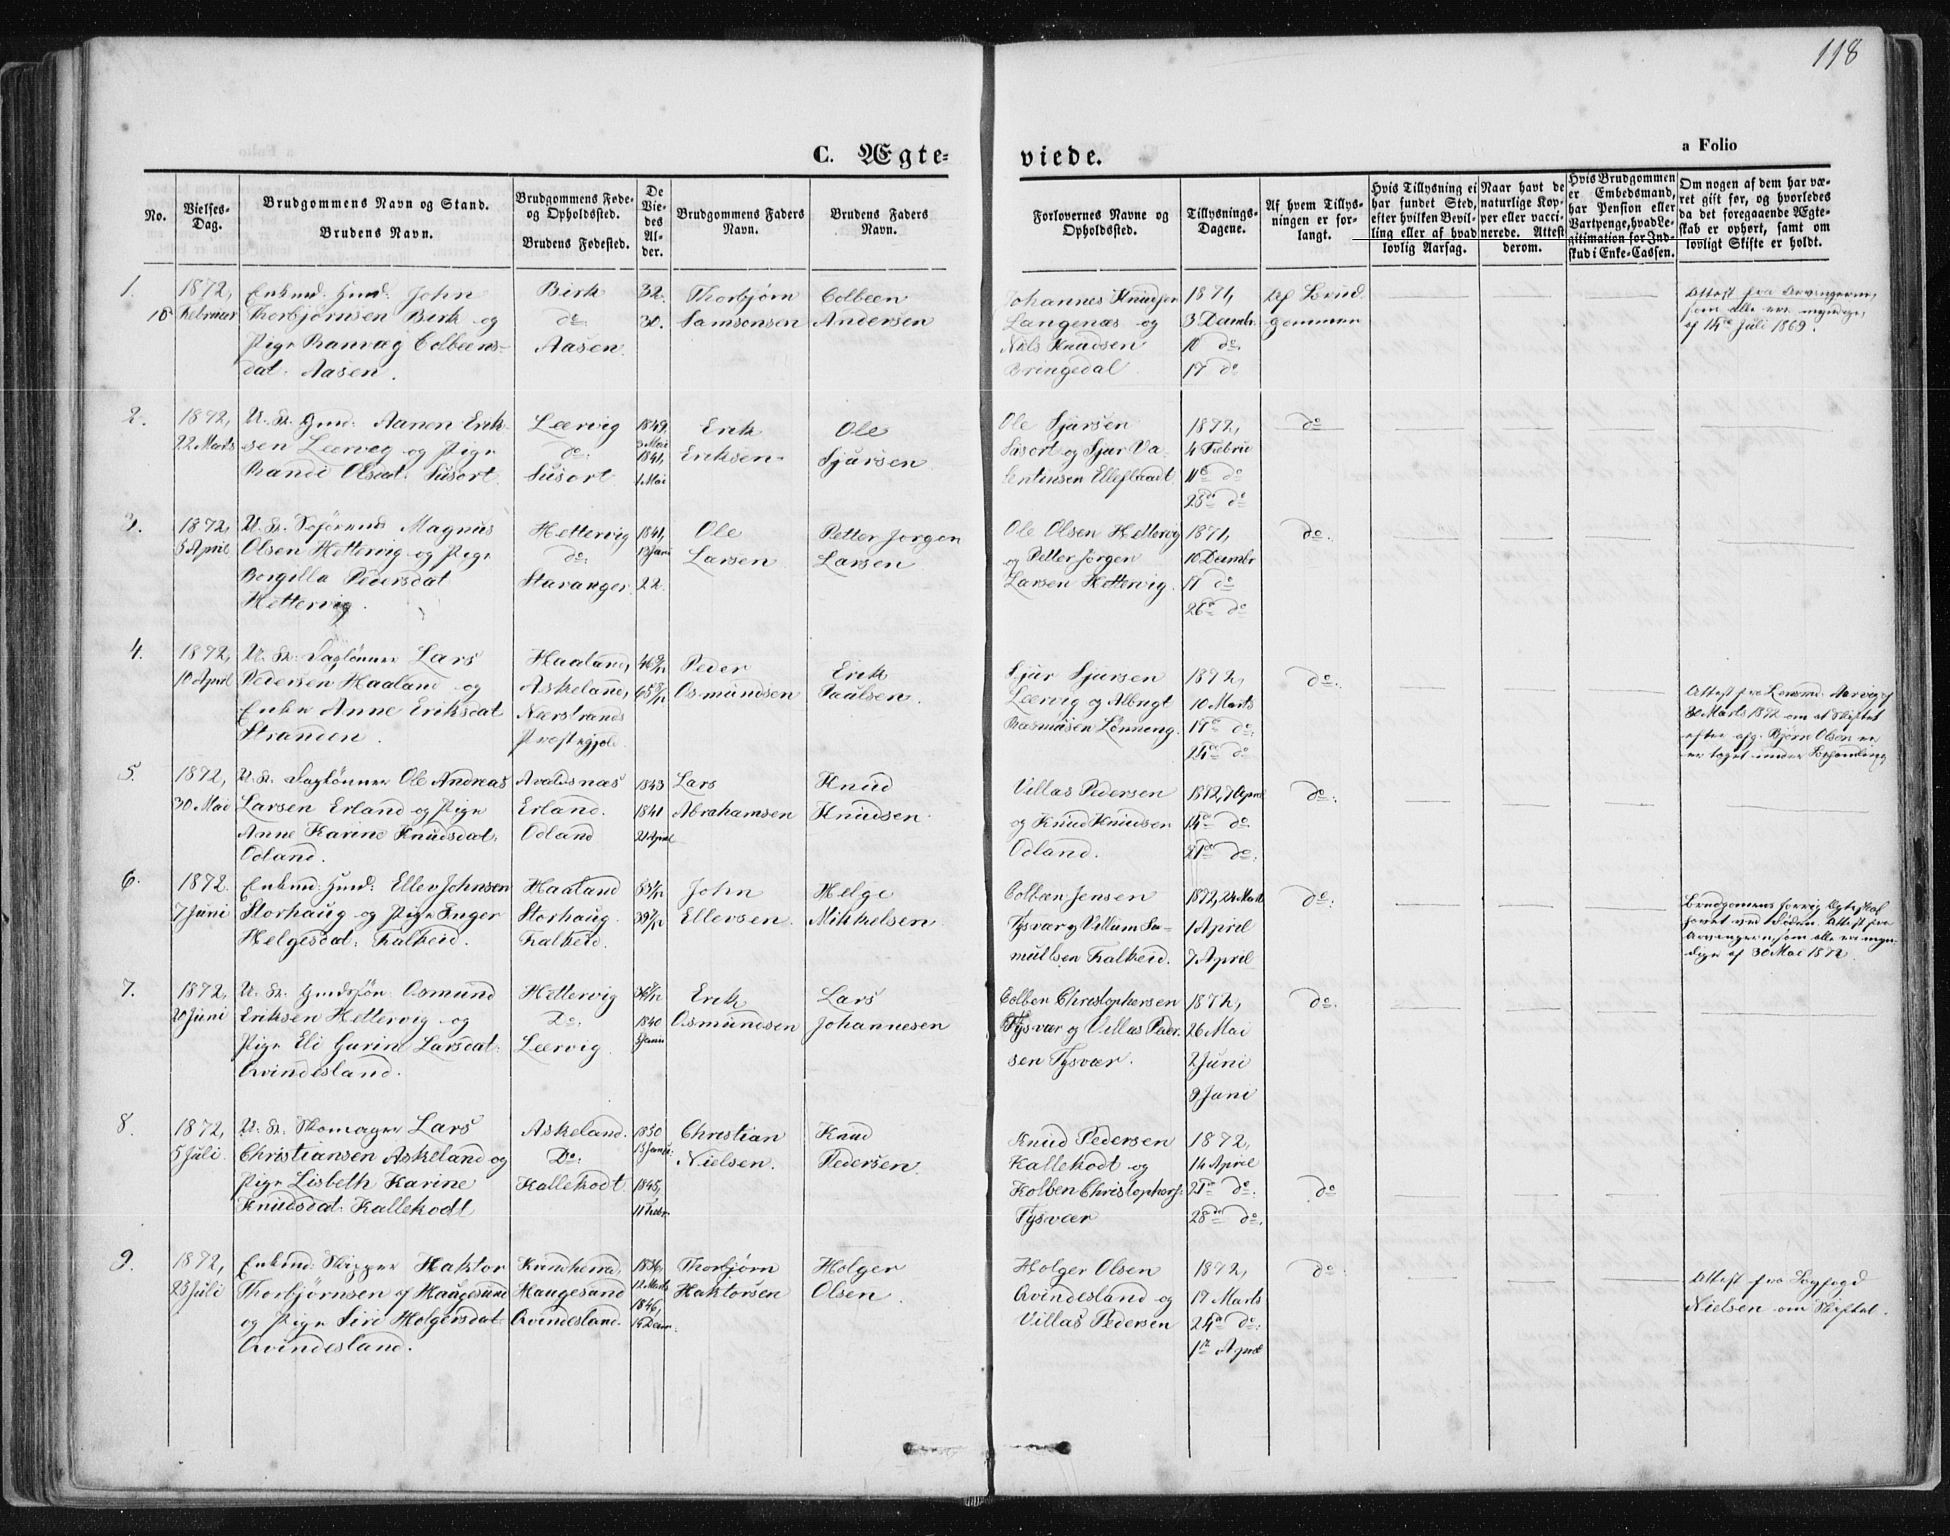 118
C. Ægteviede.
a Folio
No.
Vielses-Dag.
Brudgommens Navn og Stand.
Brudens Navn.
Brudgommens Føde- og Opholdssted.
Brudens Fødested.
De Viedes Alder.
Brudgommens Faders Navn.
Brudens Faders Navn.
Forlovernes Navne og Opholdssted.
Tillysnings-Dagene.
Af hvem Tillysningen er forlangt.
Hvis Tillysning ei har fundet Sted, efter hvilken Bevilling eller af hvad lovlig Aarsag.
Naar havt de naturlige Kopper eller vaccinerede. Attest derom.
Hvis Brudgommen er Embedsmand, har Pension eller Vartpenge, hvad Legitimation for Indskud i Enke-Cassen.
Om nogen af dem har været gift før, og hvorledes da det foregaaende Ægteskab er ophørt, samt om lovligt Skifte er holdt.
1.
1872,
Februar
Enkmd: Gmd: John
Thorbjørnsen Birk og
Pige Ranvæg Colbeens-
dat: Aasen.
Birk
do:
Aasen.
32.
30.
Thorbjørn
Samsonsen
Colbeen
Andersen
Johannes Knudsen
Langenæs og
Nils Knudsen
Bringedal
1871,
3 Decmbr.
do:
17 do
Af Brud-
gommen
Attest fra Arvingerne,
som alle ere myndige,
af 14de Juli 1869.
2.
1872,
22 Marts
U. St. Gmd: Aanen Erik-
sen Leervig og Pige
Olsdat: Susort.
Leervig
do:
Susort
1849,
3 Mai
1841,
1 Mai
Erik
Eriksen
Ole
Sjursen
Ole Sjursen
Susort og Sjur Va-
lentinsen
1872,
4 Febru
11te do
25de do
do
3.
1872,
5 April
U. St. Magnus
Olsen Hettervig og Pige
Borgilla Pedersdat
Hettervig.
Hettervig
do:
Stavanger
1841,
13 Janu
22.
Ole
Larsen
Petter Jørgen
Larsen
Ole Olsen Hettervig
og Petter Jørgen
Larsen Hettervig.
1871,
10 Decembr
17 do
26de do
do:
4.
1872,
10 April
U. St: Daglønner Lars
Pedersen Haaland og
Enke Anne Eriksdat
Stranden.
Haaland,
Askeland,
Nærstrands
Præstegjeld
Peder
Osmundsen
Erik
Paulsen.
Sjur Sjursen
Leervig og Albrigt
Rasmusen Lønning.
1872,
10 Marts
17de do:
24de do
do:
Attest fra Lensmd. Aarvig af
30 Marts 1872 om at Skiftet
efter afg. Bjørn Olsen
er taget under Behandling
5.
1872,
30 Mai
U. St. Daglønner Ole Andreas
Larsen Erland og Pige
Anne Karine Knudsdat:
Odland.
Avaldsnæs
Erland.
Odland
1843
1841
21 April
Lars
Abrahamsen
Knud
Knudsen.
Villas Pedersen
og Knud Knudsen
Odland.
1872, 7 April
14de do
21de do:
do:
6.
1872.
7 Juni
Enkmd: Gmd: Ellev Johnsen
Storhaug og Pige Inger
Helgesdat: Falkeid.
Haaland
Storhaug.
Falkeid.
John
Ellevsen.
Helge
Mikkelsen.
Colbeen Jensen
Tysvær og Villum Sa-
muelsen Falkeid.
1872, 24 Marts
1 April
7 April
do:
Brudgommens forrige Ægteskab
hævet ved Døden. Attest fra
Arvingerne, som alle ere myn-
dige af 30 Mai 1872.
7.
1872,
20 Juni
U. St. Osmund
Eriksen Hettervig og
Pige Eli Gurine Larsdat:
Qvindesland.
Hettervig
Do:
Leervig.
1840
Erik
Osmundsen
Lars
Johannesen
Colben Christophersen
Tysvær og Villas Peder-
sen Tysvær.
1872,
26 Mai
2 Juni
9 Juni
do:
8.
1872,
5 Juli.
U. St. Skomager Lars
Christiansen Askeland og
Pige Lisbeth Karine
Knudsdat: Kallekodt
Askeland.
Do:
Kallekodt.
1850
13 Janu:
1845,
11 Febr.
Christian
Nielsen.
Knud
Pedersen.
Knud Pedersen
Kallekodt og
Kolben Christophers:
Tysvær
1872,
14 April
21de do:
28de do.
do
9.
1872,
23 Juli
Enkmd: Skipper Haktor
Thorbjørnsen af Haugesund
og Pige Siri Holgersdat:
Qvindesland.
Kvindherred
Haugesund
Qvindesland.
1836,
12 Marts
1846,
Thorbjørn
Haktorsen
Holger
Olsen.
Holger Olsen
Qvindesland og
Villas Pedersen
1872,
17 Marts
24de do:
1te April
do:
Attest fra Sogfogd
Nielsen om Skiftet.